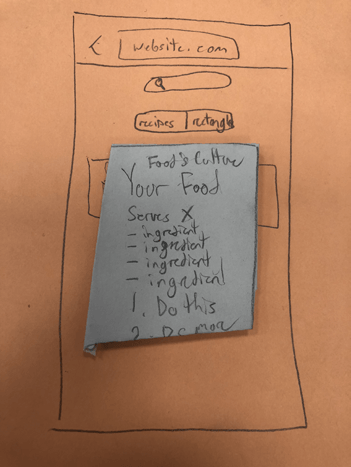 website.com
recipes rectangle
Food's Culture
Your Food
Serves X
- ingredient
- ingredient
- ingredient
- ingredient
1. Do this
2. Do more